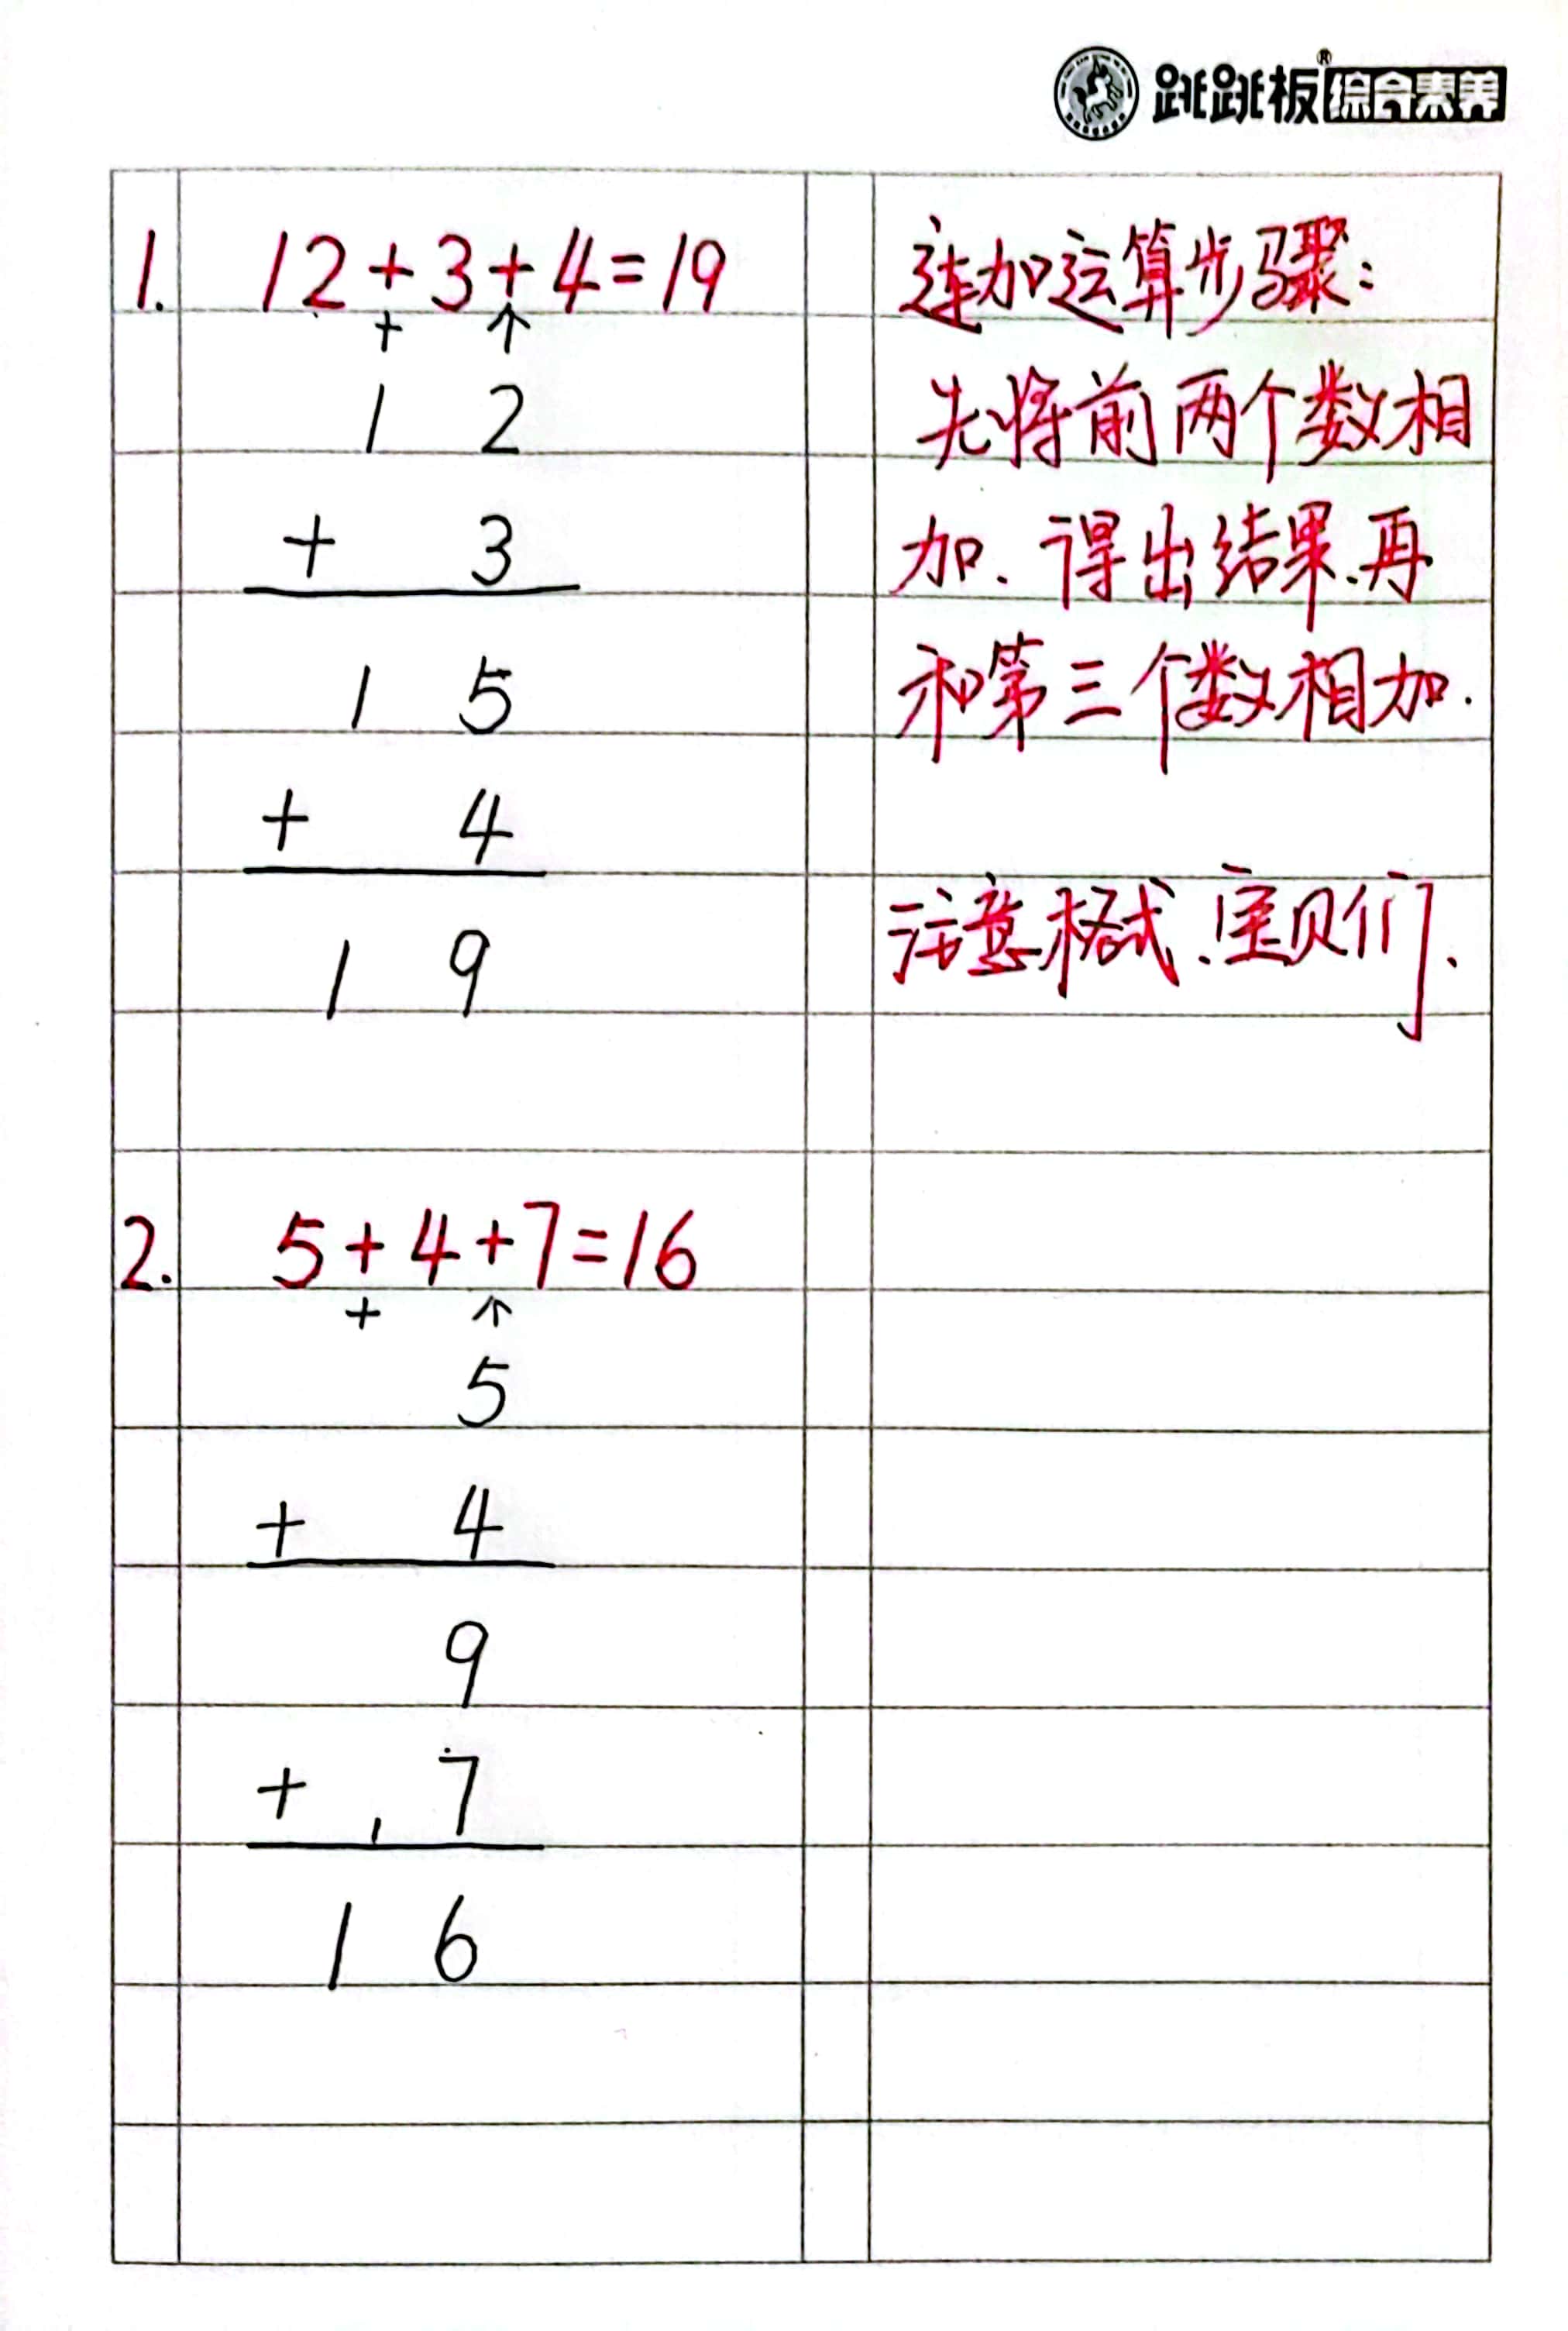 跳跳板®综合素养
1. 12+3+4=19
+ ↑
1 2
+ 3
1 5
+ 4
1 9
2. 5+4+7=16
+ ↑
5
+ 4
9
+ 1 7
1 6
连加运算步骤:
先将前两个数相
加、得出结果、再
和第三个数相加.
注意格式、宝贝们、